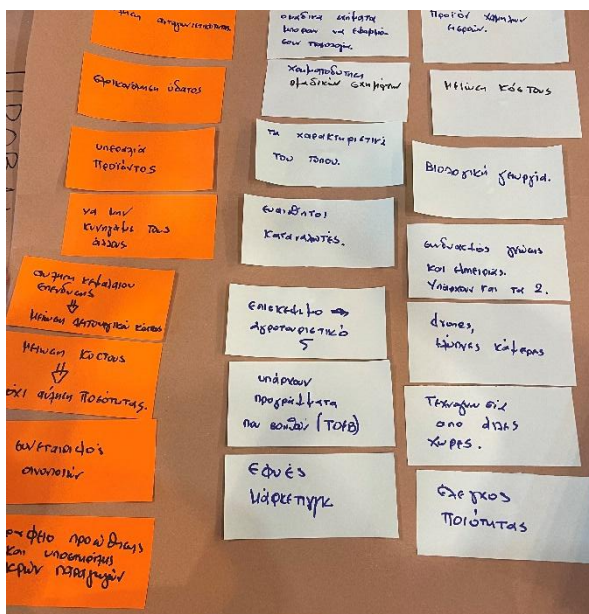 εξοικονόμηση ύδατος
υπεραξία
Προϊόντος
να μην
κυνηγάμε τους
άλλους
αύξηση κεφαλαίου
επένδυσης
⇓
Μείωση λειτουργικού κόστους
Μείωση κόστους
⇓
όχι αύξηση ποσότητας.
συνεταιρισμός
οινοποιών
προώθησης
και υποστήριξης
παραγωγών
ομαδικά σχήματα
μπορούν να
Χρηματοδότηση
ομαδικών σχημάτων
τα χαρακτηριστικά
του τόπου.
ευαίσθητος
καταναλωτές.
επισκέψιμο →
αγροτουριστικό
υπάρχουν
προγράμματα
που βοηθούν (ΤΟΕΒ)
Ευφυές
Μάρκετινγκ
Προϊόν χαμηλών
Μείωση κόστους
Βιολογική γεωργία.
συνδυασμός γνώσης
και εμπειρίας.
Υπάρχουν και τα 2.
drones,
έξυπνες κάμερες
Τεχνογνωσία
από άλλες
χώρες.
Έλεγχος
Ποιότητας